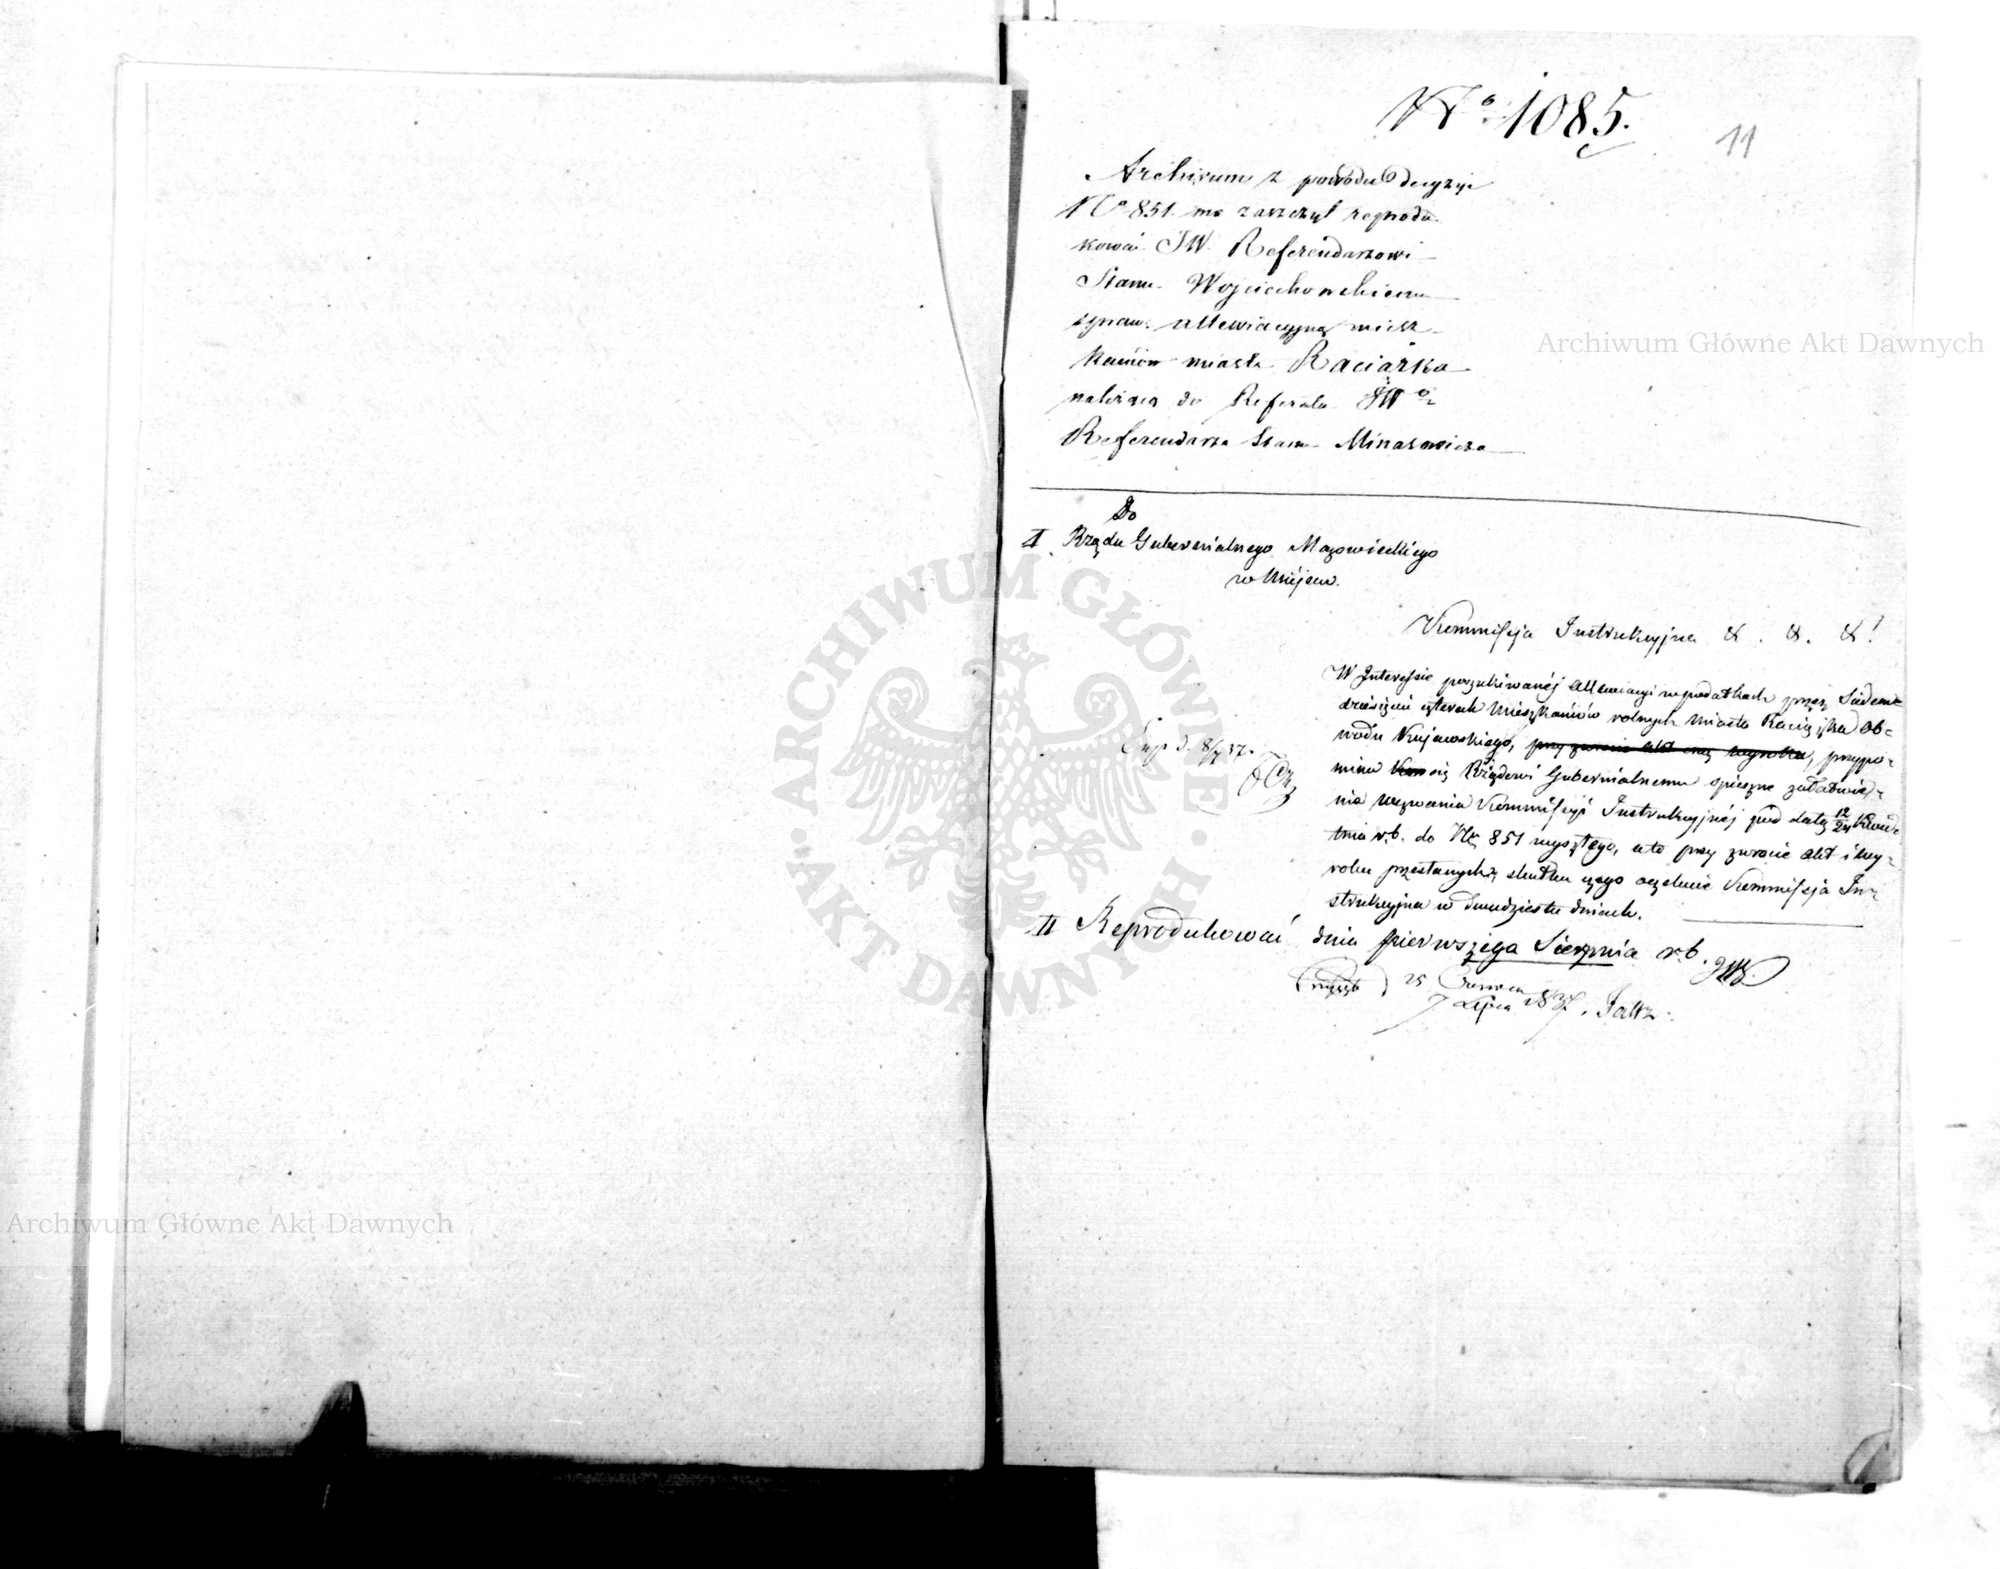 No 1085.
11
Archiwum z powodu decyzyi
No 851. ma zaszczyt reprodu
kować JW. Referendarzowi
Stanu Wojciechowskiemu
spraw. allewiacyjną miesz
kańców miasta Raciążka
należącą do Referatu JWo
Referendarza Stanu Minasowicza
Do
I Rządu Gubernialnego Mazowieckiego
w Miejscu.
Kommissja Instrukcyjna & . & . &
W Interessie poszukiwanéj allewiacyi w podatkach przez Siedem
dziesięciu czterech Mieszkańców rolnych Miasta Raciążka Ob=
wodu Kujawskiego, przy zwrocie akt oraz wyroku, przypo=
mina się Rządowi Gubernialnemu spieszne załatwie=
nie wezwania Kommissyi Instrukcyjnéj pod datą 12/24 Kwie
tnia r.b. do Nr 851 wyszłego, a to przy zwrocie akt i wy=
roku przesłanych, skutku czego oczekuie Kommissja In=
strukcyjna w dwudziestu dniach.
Exp d. 8/7 37.
II Reprodukować dnia pierwszego Sierpnia r.b.
d 25 Czerwca
7 Lipca 1837.
Archiwum Główne Akt Dawnych
Archiwum Główne Akt Dawnych
ARCHIWUM GŁÓWNE
AKT DAWNYCH